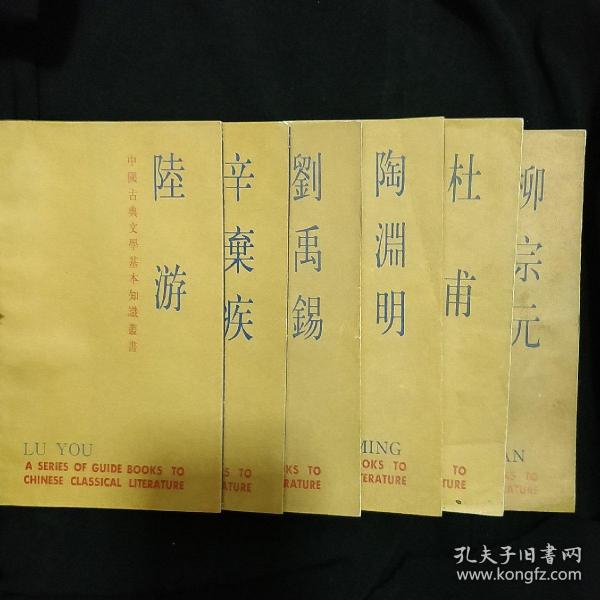 中國古典文學基本知識叢書
陸游
LU YOU
A SERIES OF GUIDE BOOKS TO
CHINESE CLASSICAL LITERATURE
辛棄疾
S TO
ATURE
劉禹錫
KS TO
RATURE
陶淵明
MING
OOKS TO
TERATURE
杜甫
TO
ATURE
柳宗元
AN
KS TO
RATURE
孔夫子旧书网
www.kongfz.com